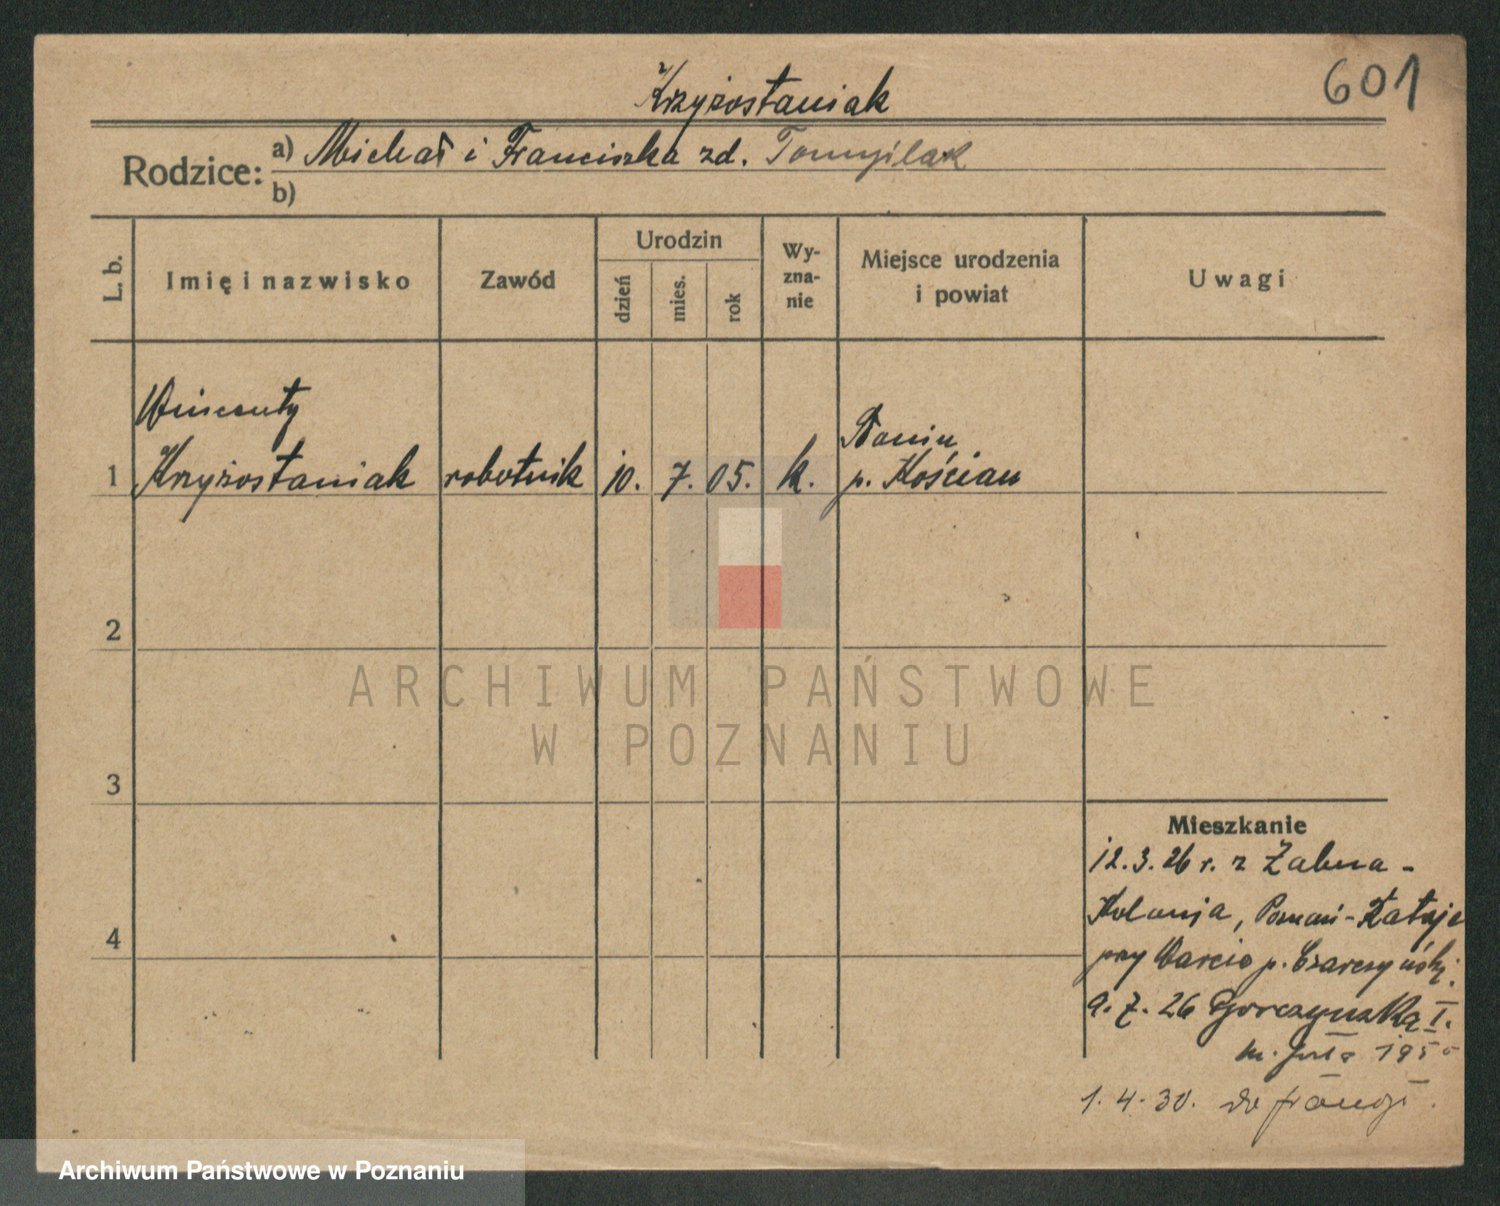 601
Krzyżostaniak
Rodzice: a) Michał i Franciszka zd. Tomyślak
b)
L. b.
Imię i nazwisko
Zawód
Urodzin
dzień
mies.
rok
Wy-
zna-
nie
Miejsce urodzenia
i powiat
Uwagi
Wincenty
1 Krzyżostaniak robotnik 10. 7. 05. k.
p. Kościan
2
3
4
ARCHIWUM PAŃSTWOWE
W POZNANIU
Mieszkanie
12.3.26 r. z Żabna-
Kolonja, Poznań-Rataje
przy Warcie p.
9. 7. 26 Gorczyńska I.
1.4.30. do
Archiwum Państwowe w Poznaniu